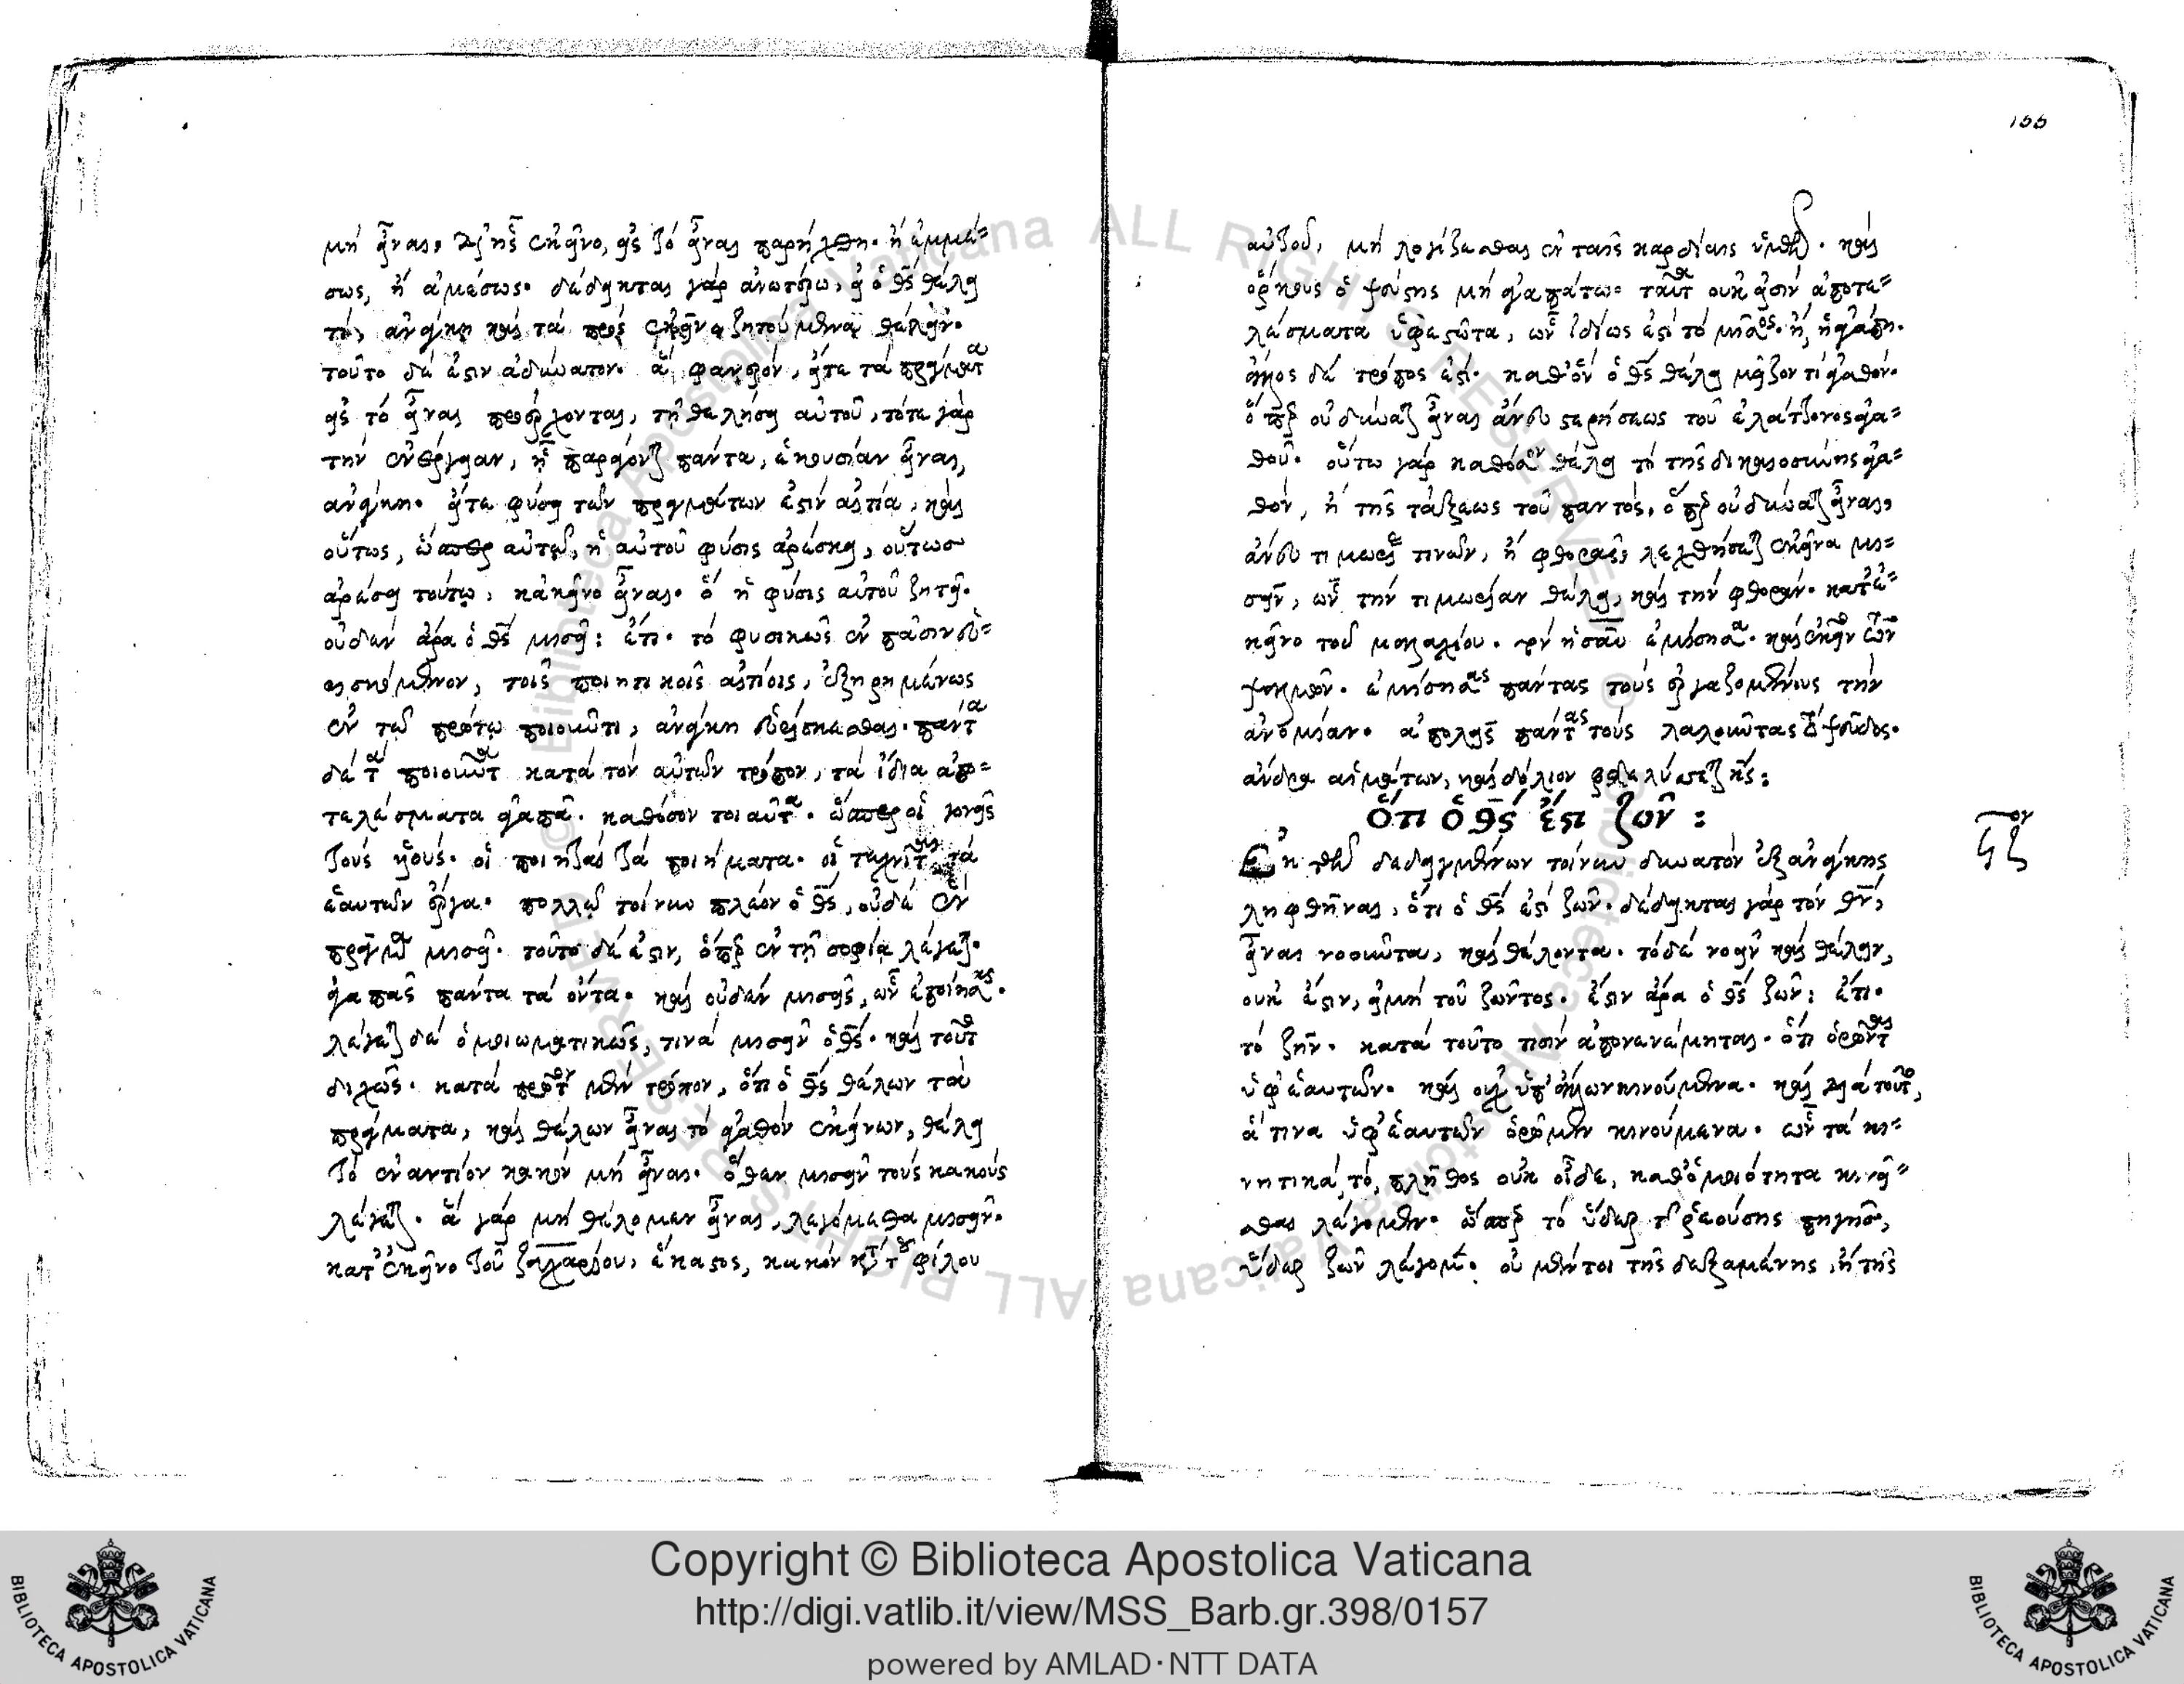 μὴ εἶναι, δι' ἧς ἐκεῖνο, εἰς τὸ εἶναι παρήχθη. ἢ ἐμμέ-
σως, ἢ ἀμέσως. δέδεικται γὰρ ἀνωτέρω, εἰ ὁ θς θέλει
τὶ, ἀνάγκη καὶ τὰ πρὸς ἐκεῖνα ζητούμενα θέλειν.
τοῦτο δέ ἐστιν ἀδύνατον. ὃ φανερόν, εἴτε τὰ πράγματα
εἰς τὸ εἶναι προέρχονται, τῇ θελήσει αὐτοῦ, τότε γὰρ
τὴν ἐνέργειαν, ᾗ παράγονται πάντα, ἑκουσίαν εἶναι,
ἀνάγκη. εἴτε φύσει τῶν πραγμάτων ἐστὶν αἰτία, καὶ
οὕτως, ὥσπερ αὐτῷ, ἡ αὐτοῦ φύσις ἀρέσκει, οὕτως
ἀρέσει τούτῳ, κἀκεῖνο εἶναι. ὃ ἡ φύσις αὐτοῦ ζητεῖ.
οὐδὲν ἄρα ὁ θς μισεῖ: ἔτι. τὸ φυσικῶς ἐν πᾶσιν εὑ-
ρισκόμενον, τοῖς ποιητικοῖς αἰτίοις, ἐξῃρημένως
ἐν τῷ πρώτῳ ποιοῦντι, ἀνάγκη εὑρίσκεσθαι. πάντα
δὲ τὰ ποιοῦντα κατὰ τὸν αὐτῶν τρόπον, τὰ ἴδια ἀπο-
τελέσματα ἀγαπᾶ. καθόσον τοιαῦτα. ὥσπερ οἱ γονεῖς
τοὺς υἱούς. οἱ ποιηταὶ τὰ ποιήματα. οἱ τεχνῖται τὰ
ἑαυτῶν ἔργα. πολλῷ τοίνυν πλέον ὁ θς, οὐδὲ ἓν
πρᾶγμα μισεῖ. τοῦτο δέ ἐστιν, ὅπερ ἐν τῇ σοφίᾳ λέγεται.
ἀγαπᾷς πάντα τὰ ὄντα. καὶ οὐδὲν μισεῖς, ὧν ἐποίησας.
λέγεται δὲ ὁμοιωματικῶς, τινὰ μισεῖν ὁ θς. καὶ τοῦτο
διχῶς. κατὰ πρῶτον μὲν τρόπον, ὅτι ὁ θς θέλων τὰ
πράγματα, καὶ θέλων εἶναι τὸ ἀγαθὸν ἐκείνων, θέλει
τὸ ἐναντίον κακὸν μὴ εἶναι. ὅθεν μισεῖν τοὺς κακοὺς
λέγεται. ἃ γὰρ μὴ θέλομεν εἶναι, λεγόμεθα μισεῖν.
κατ' ἐκεῖνο τοῦ ζαχαρίου, ἕκαστος, κακὸν κατὰ τοῦ φίλου
αὐτοῦ, μὴ λογίζεσθαι ἐν ταῖς καρδίαις ὑμῶν. καὶ
ὅρκους ὁ ψεύσης μὴ ἀγαπάτω. ταῦτα οὐκ εἰσὶν ἀποτε-
λέσματα ὑφεστῶτα, ὧν ἰδίως ἐστὶ τὸ μῖσος. ἢ, ἡ ἀγάπη.
ἄλλος δὲ τρόπος ἐστὶ. καθ' ὃν ὁ θς θέλει μεῖζον τι ἀγαθόν.
ὅπερ οὐ δύναται εἶναι ἄνευ στερήσεως τοῦ ἐλάττονος ἀγα-
θοῦ. οὕτω γὰρ καθόσον θέλει τὸ τῆς δικαιοσύνης ἀγα-
θόν, ἢ τῆς τάξεως τοῦ παντός, ὅπερ οὐ δύναται εἶναι,
ἄνευ τιμωρίας τινῶν, ἢ φθορᾶς, λεχθήσεται ἐκεῖνα μι-
σεῖν, ὧν τὴν τιμωρίαν θέλει, καὶ τὴν φθοράν. κατ' ἐ-
κεῖνο τοῦ μαλαχίου. τὸν ἡσαῦ ἐμίσησα. καὶ ἐκεῖνο τῶν
ψαλμῶν. ἐμίσησας πάντας τοὺς ἐργαζομένους τὴν
ἀνομίαν. ἀπολεῖς πάντας τοὺς λαλοῦντας τὸ ψεῦδος.
ἄνδρα αἱμάτων, καὶ δόλιον βδελύσσεται κς:
ὅτι ὁ θς ἔστι ζῶν:
Ἐκ τῶν δεδειγμένων τοίνυν δυνατὸν ἐξ ἀνάγκης
ληφθῆναι, ὅτι ὁ θς ἐστὶ ζῶν. δέδεικται γὰρ τὸν θν,
εἶναι νοοῦντα, καὶ θέλοντα. τὸ δὲ νοεῖν καὶ θέλειν,
οὐκ ἔστιν, εἰ μὴ τοῦ ζῶντος. ἔστιν ἄρα ὁ θς ζῶν: ἔτι.
τὸ ζῆν. κατὰ τοῦτο τισὶν ἀπονενέμηται. ὅτι ὁρῶνται
ὑφ' ἑαυτῶν. καὶ οὐχ ὑπ' ἄλλων κινούμενα. καὶ διὰ τοῦτο,
ἅ τινα ὑφ' ἑαυτῶν ὁρῶμεν κινούμενα. ὧν τὰ κι-
νητικά, τὸ, πλῆθος οὐκ οἶδε, καθ' ὁμοιότητα κινεῖ-
σθαι λέγομεν. ὥσπερ τὸ ὕδωρ τῆς ῥεούσης πηγῆς,
ὕδωρ ζῶν λέγομεν. οὐ μέντοι τῆς δεξαμένης, ἢ τῆς
166